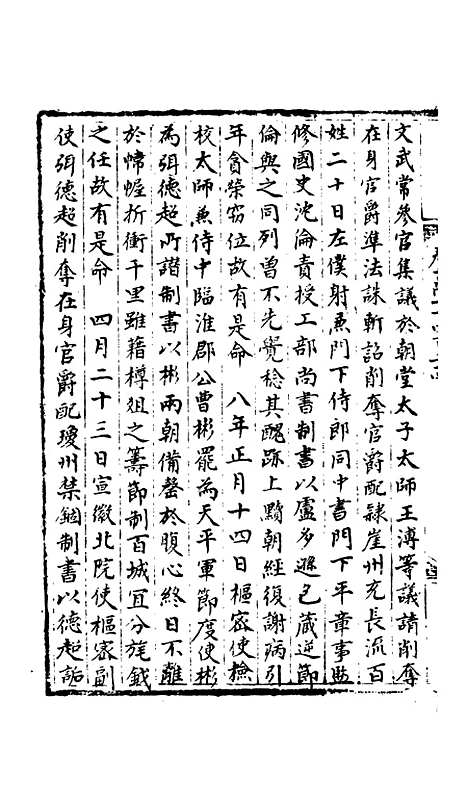 文武常參官集議於朝堂太子太師王溥等議請削奪
在身官爵準法誅斬詔削奪官爵配隸崖州充長流百
姓二十日左僕射兼門下侍郎同中書門下平章事監
修國史沈倫責授工部尚書制書以盧多遜包藏逆節
倫與之同列曾不先覺稔其醜跡上黷朝經復謝病引
年貪榮竊位故有是命　八年正月十四日樞密使檢
校太師兼侍中臨淮郡公曹彬罷為天平軍節度使彬
為弭德超所譖制書以彬兩朝備罄於腹心終日不離
於幃幄折衝千里雖藉樽俎之籌節制百城宜分旄鉞
之任故有是命　四月二十三日宣徽北院使樞密副
使弭德超削奪在身官爵配瓊州禁錮制書以德超詬